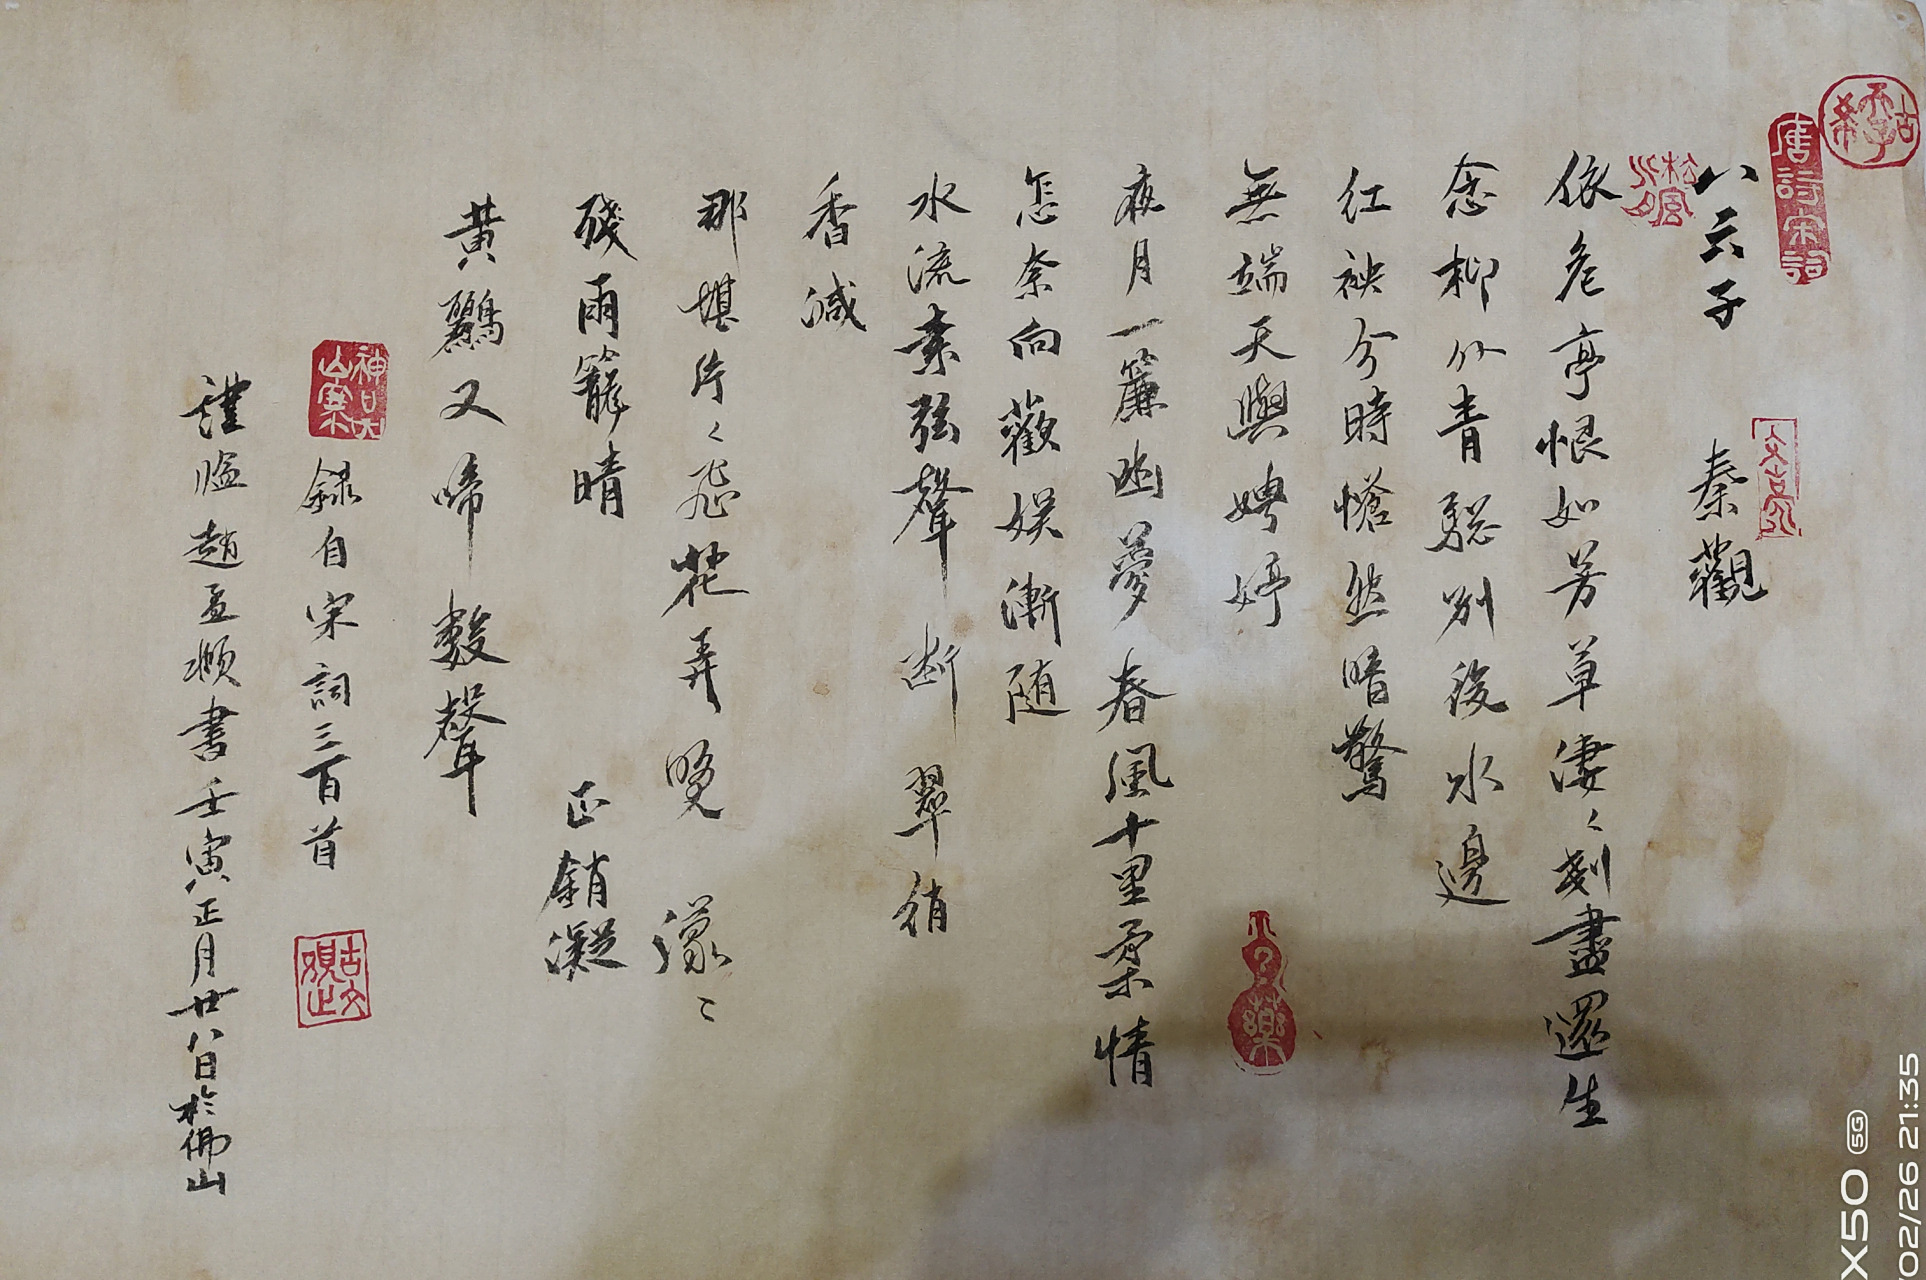 唐詩宋詞
八六子 秦觀
倚危亭恨如芳草淒〻剗盡還生
念柳外青驄別後水邊
紅袂分時愴然暗驚
無端天與娉婷
夜月一簾幽夢春風十里柔情
怎奈向歡娛漸隨
水流素弦聲斷翠綃
香減
那堪片〻飛花弄晚濛〻
殘雨籠晴 正銷凝
黃鸝又啼數聲
錄自宋詞三百首
謹臨趙孟頫書壬寅正月廿八日於佛山
X50 5G
/02/26 21:35